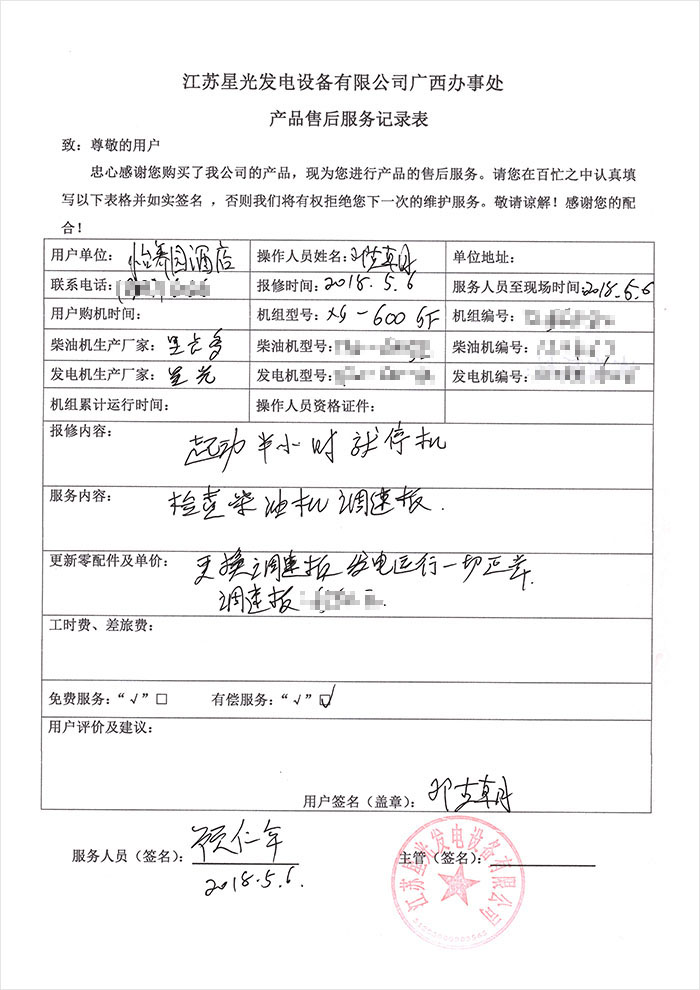 江苏星光发电设备有限公司广西办事处
产品售后服务记录表
致：尊敬的用户
忠心感谢您购买了我公司的产品，现为您进行产品的售后服务。请您在百忙之中认真填
写以下表格并如实签名 ，否则我们将有权拒绝您下一次的维护服务。敬请谅解！感谢您的配
合！
用户单位： 园酒店 操作人员姓名： 单位地址：
联系电话： 报修时间：2018.5.6 服务人员至现场时间：2018.5.6
用户购机时间： 机组型号：XG-600GF 机组编号：
柴油机生产厂家： 柴油机型号： 柴油机编号：
发电机生产厂家：星光 发电机型号： 发电机编号：
机组累计运行时间： 操作人员资格证件：
报修内容： 起动半小时就停机
服务内容： 检查柴油机调速板.
更新零配件及单价： 更换调速板 发电运行一切正常.
调速板
工时费、差旅费：
免费服务：“√”□ 有偿服务：“√”☑
用户评价及建议：
用户签名（盖章）：
服务人员（签名）： 顾仁年 主管（签名）：
2018.5.6.
江苏星光发电设备有限公司